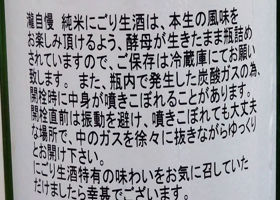 瀧自慢 純米にごり生酒は、本生の風味を
お楽しみ頂けるよう、酵母が生きたまま瓶詰め
されていますので、ご保存は冷蔵庫にてお願い
致します。また、瓶内で発生した炭酸ガスの為、
開栓時に中身が噴きこぼれることがあります。
開栓直前は振動を避け、噴きこぼれても大丈夫
な場所で、中のガスを徐々に抜きながらゆっくり
とお開け下さい。
にごり生酒特有の味わいをお気に召していた
だけましたら幸甚でございます。